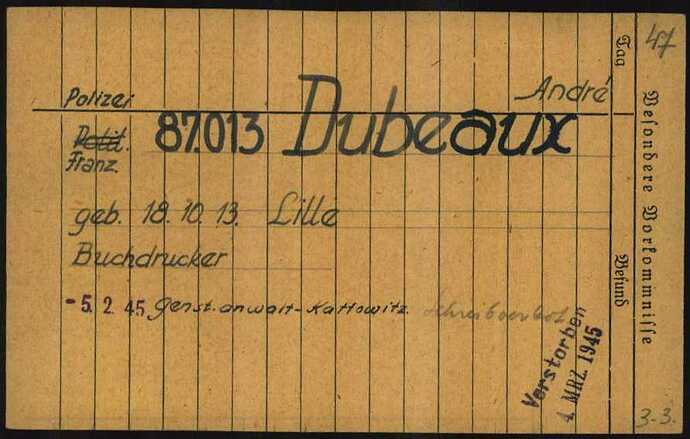 Polizei
André
Polit. 87.013 Dubeaux
Franz.
geb. 18.10.13. Lille
Buchdrucker
- 5. 2. 45 Genst.anwalt-Kattowitz. Schreibverbot
Verstorben
4. MRZ. 1945
Tag
Befund
Besondere Vorkommnisse
47
3-3.